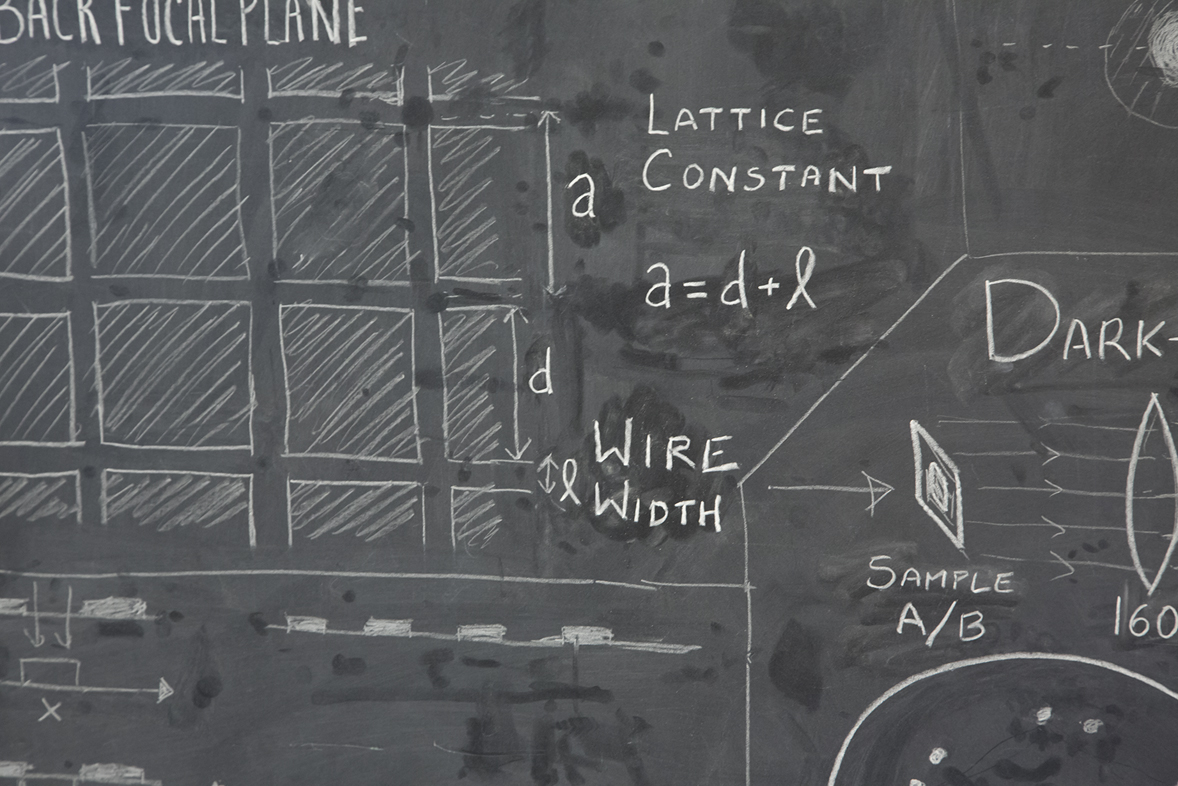 BACK FOCAL PLANE
LATTICE
CONSTANT
a
a=d+l
d
WIRE
WIDTH
l
DARK-
SAMPLE
A/B
160
x